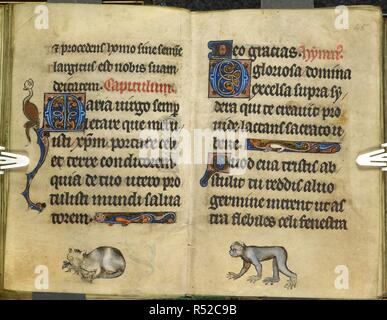 & procedens homo sine semīe
largitus est nobis suam
deitatem. Capitulum.
Maria uirgo semp
letare que meru
isti xp̄m portare celi
et terre conditorem
quia de tuo utero pro
tulisti mundi salua
torem.
Deo gracias. Hymn᷒.
O gloriosa domina
excelsa supra sy
dera qui te creauit pro
uide lactans sacrato u
bere.
Quod eua tristis ab
stulit tu reddis almo
germine intrent ut as
tra flebiles celi fenestra
alamy
R52C9B